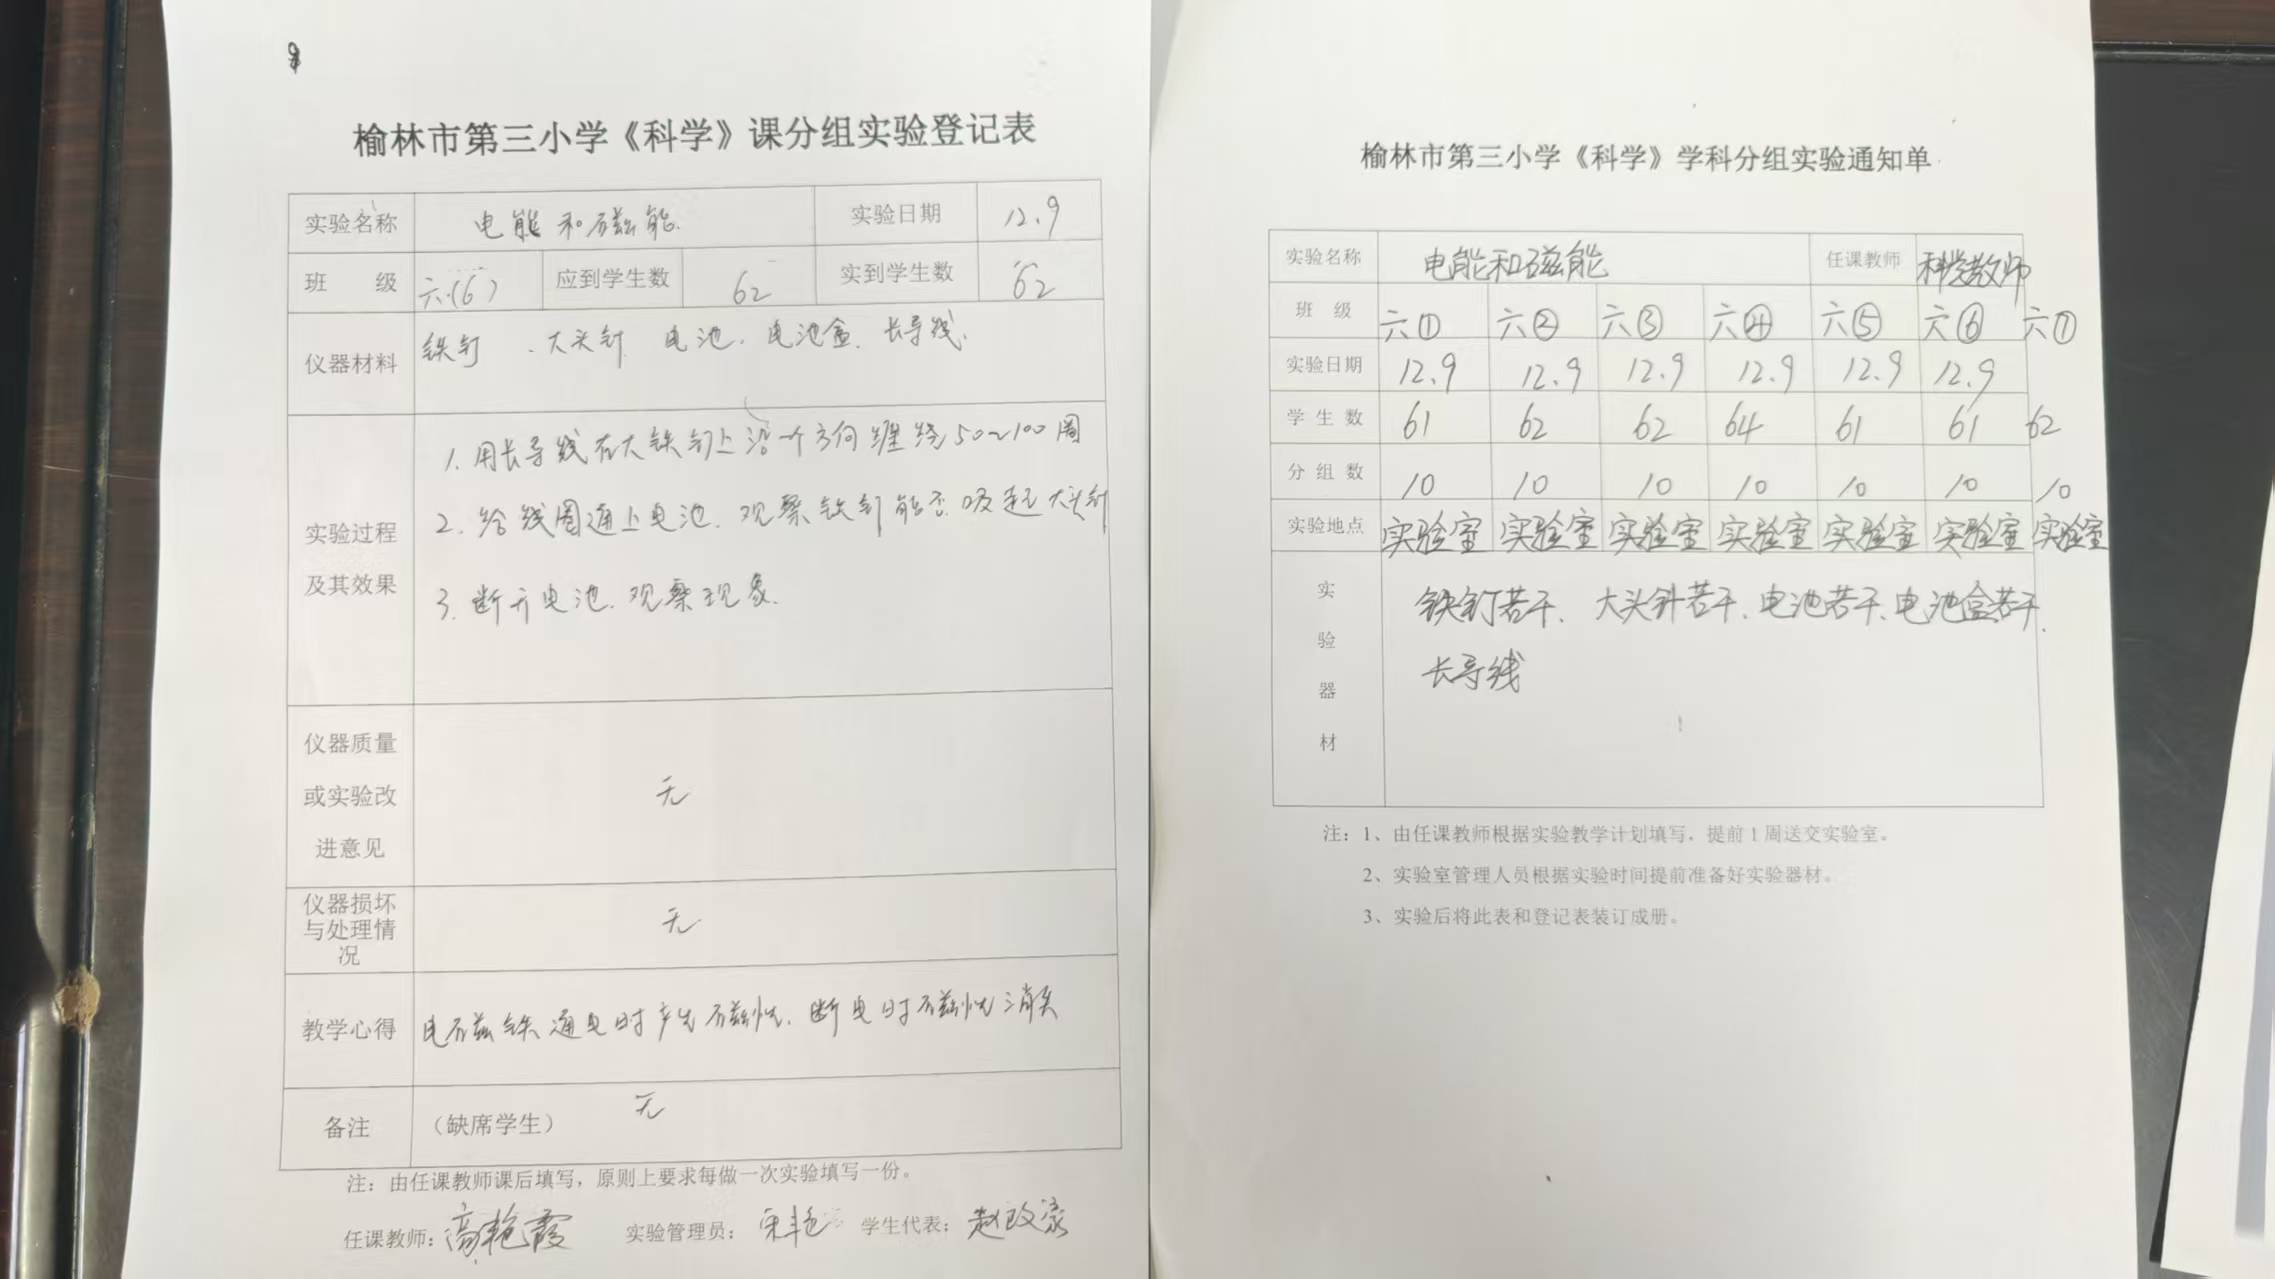 9
榆林市第三小学《科学》课分组实验登记表
实验名称 电能和磁能 实验日期 12.9
班 级 六(6) 应到学生数 62 实到学生数 62
仪器材料 铁钉、大头针 电池、电池盒、长导线.
实验过程及其效果
1. 用长导线在大铁钉上沿一个方向缠绕50~100圈
2. 给线圈通上电池、观察铁钉能否吸起大头针
3. 断开电池、观察现象.
仪器质量或实验改进意见 无
仪器损坏与处理情况 无
教学心得 电磁铁通电时产生磁性、断电时磁性消失
备注 (缺席学生) 无
注：由任课教师课后填写，原则上要求每做一次实验填写一份。
任课教师：高艳霞 实验管理员： 学生代表：
榆林市第三小学《科学》学科分组实验通知单
实验名称 电能和磁能 任课教师 科学教师
班 级 六① 六② 六③ 六④ 六⑤ 六⑥ 六⑦
实验日期 12.9 12.9 12.9 12.9 12.9 12.9
学 生 数 61 62 62 64 61 61 62
分 组 数 10 10 10 10 10 10 10
实验地点 实验室 实验室 实验室 实验室 实验室 实验室 实验室
实验器材 铁钉若干、大头针若干、电池若干、电池盒若干、
长导线
注：1、由任课教师根据实验教学计划填写，提前1周送交实验室。
2、实验室管理人员根据实验时间提前准备好实验器材。
3、实验后将此表和登记表装订成册。